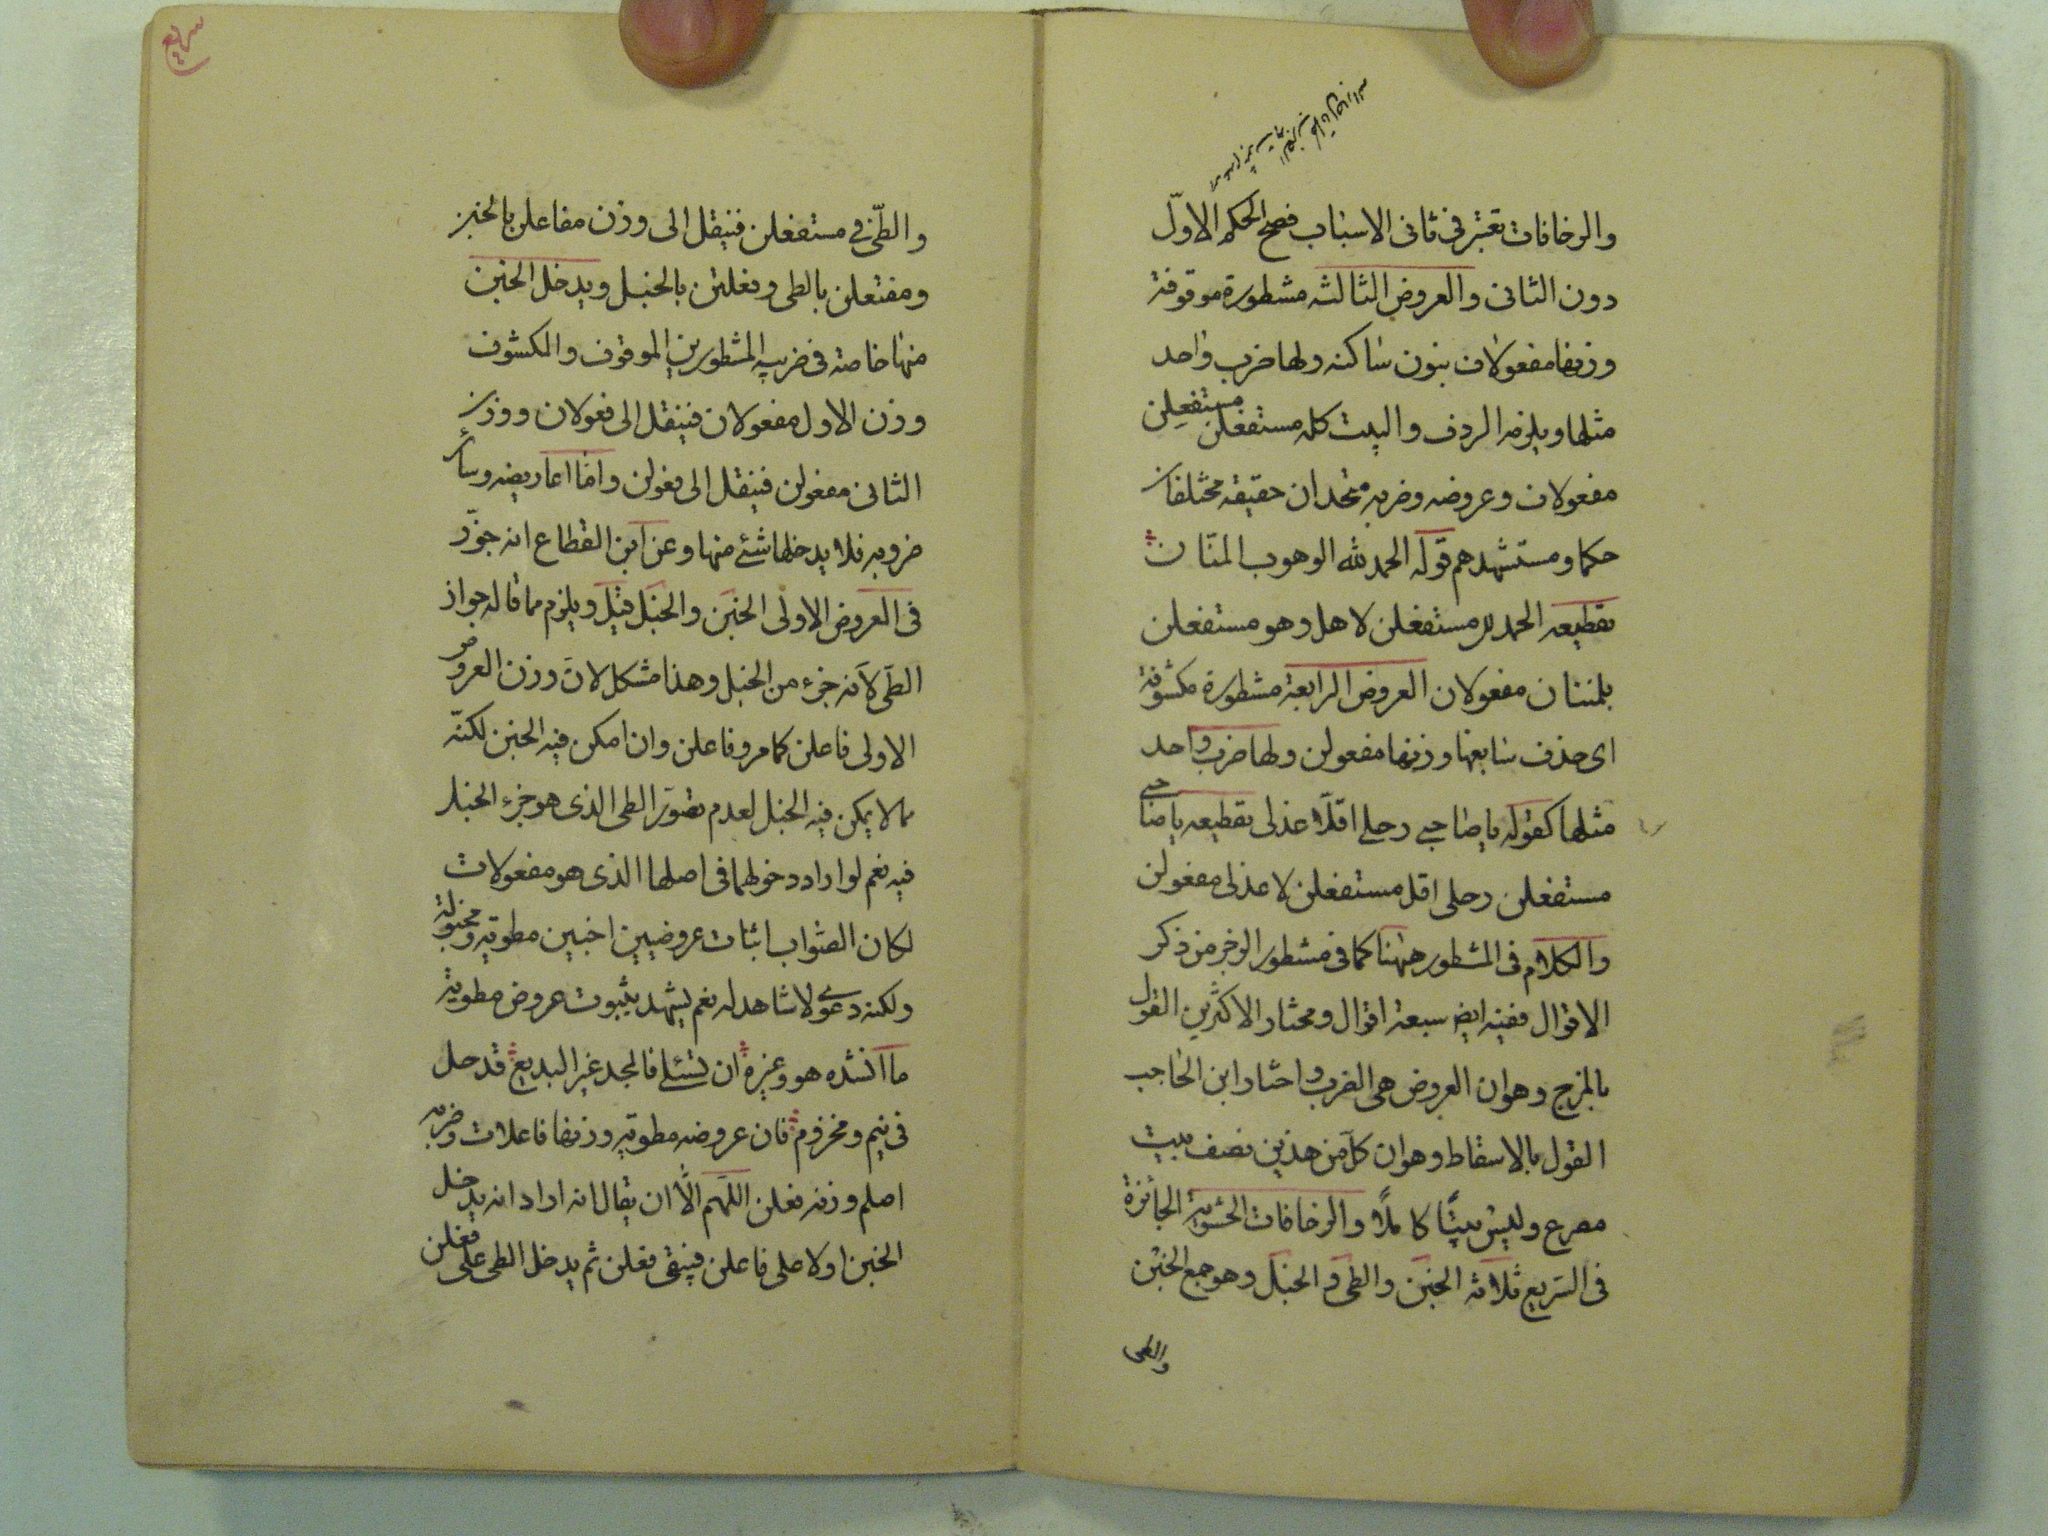 والزحافات تعتبر في ثاني الاسباب فصح الحكم الاوّل
دون الثاني والعروض الثالثه مشطورة موقوفة
وزنها مفعولان بنون ساكنه ولها ضرب واحد
مثلها ويلزمه الردف والبيت كله مستفعلن مستفعلن
مفعولان وعروضه وضربه متحدان حقيقه مختلفان
حكما ومستشهدهم قوله الحمد لله الوهوب المنّان
تقطيعه الحمد لل مستفعلن لاهل وهو مستفعلن
بلمننان مفعولان العروض الرابعة مشطورة مكشوفة
اى حذف سابعها وزنها مفعولن ولها ضرب واحد
مثلها كقوله يا صاحبى رحلى اقلّا عذلى تقطيعه يا صاحبى
مستفعلن رحلى اقل مستفعلن لا عذلى مفعولن
والكلام فى المشطور ههنا كما فى مشطور الرجز من ذكر
الاقوال ففيه ايض سبعة اقوال ومختار الاكثرين القول
بالمزج وهو ان العروض هى الضرب واختار ابن الحاجب
القول بالاسقاط وهو ان كلّ من هذين نصف بيت
مصرع وليس بيتًا كاملًا والزحافات الحشوية الجائزة
فى السّريع ثلاثة الخبن والطى والخبل وهو جمع الخبن
والطى
سريع
والطّى فى مستفعلن فينقل الى وزن مفاعلن بالخبن
ومفتعلن بالطى وفعلتن بالخبل ويدخل الخبن
منها خاصة فى ضربيه المشطورين الموقوف والكشوف
وزن الاول مفعولان فينقل الى فعولان ووزن
الثانى مفعولن فينقل الى فعولن وامّا اعاريضه وسائر
ضروبه فلا يدخلها شئ منها وعن ابن القطاع انه جوّز
فى العروض الاولى الخبن والخبل قيل ويلزم مما قاله جواز
الطّى لانه جزء من الخبل وهذا مشكل لانّ وزن العروض
الاولى فاعلن كما مر وفاعلن وان امكن فيه الخبن لكنّه
مما لا يمكن فيه الخبل لعدم تصوّر الطى الذى هو جزء الخبل
فيه نعم لو اراد دخولهما فى اصلها الذى هو مفعولات
لكان الصّواب اثبات عروضيين اخبين مطويّه ومخبولة
ولكنه دعوى لا شاهد له نعم يشهد بثبوت عروض مطوية
ما انشده هو وغيره ان تسئلى فالمجد غير البديع قد حل
فى تيم ومخزوم فان عروضه مطويّه وزنها فاعلات وضربه
اصلم وزنه فعلن اللّهم الّا ان يقال انه اراد انه يدخل
الخبن اولا على فاعلن فيبقى فعلن ثم يدخل الطى على فعلن